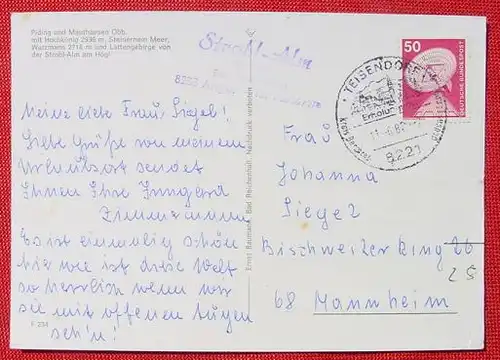 Piding und Mauthausen Obb.
mit Hochkönig 2938 m, Steinernem Meer,
Watzmann 2714 m und Lattengebirge von
der Strobl-Alm am Högl
Strobl-Alm
8229
50
DEUTSCHE BUNDESPOST
TEISENDORF
Erholung
8221
Meine liebe Frau Siegel!
Liebe Grüße von meinem
Urlaubsort sendet
Ihnen Ihre Irmgard
Zimmermann
Es ist einmalig schön
hie wie ist diese Welt
so herrlich wenn wir
sie mit offenen Augen
seh'n!
Frau
Johanna
Siegel
Bischweiler Ring 26
25
68 Mannheim
Ernst Baumann, Bad Reichenhall, Nachdruck verboten
F 234